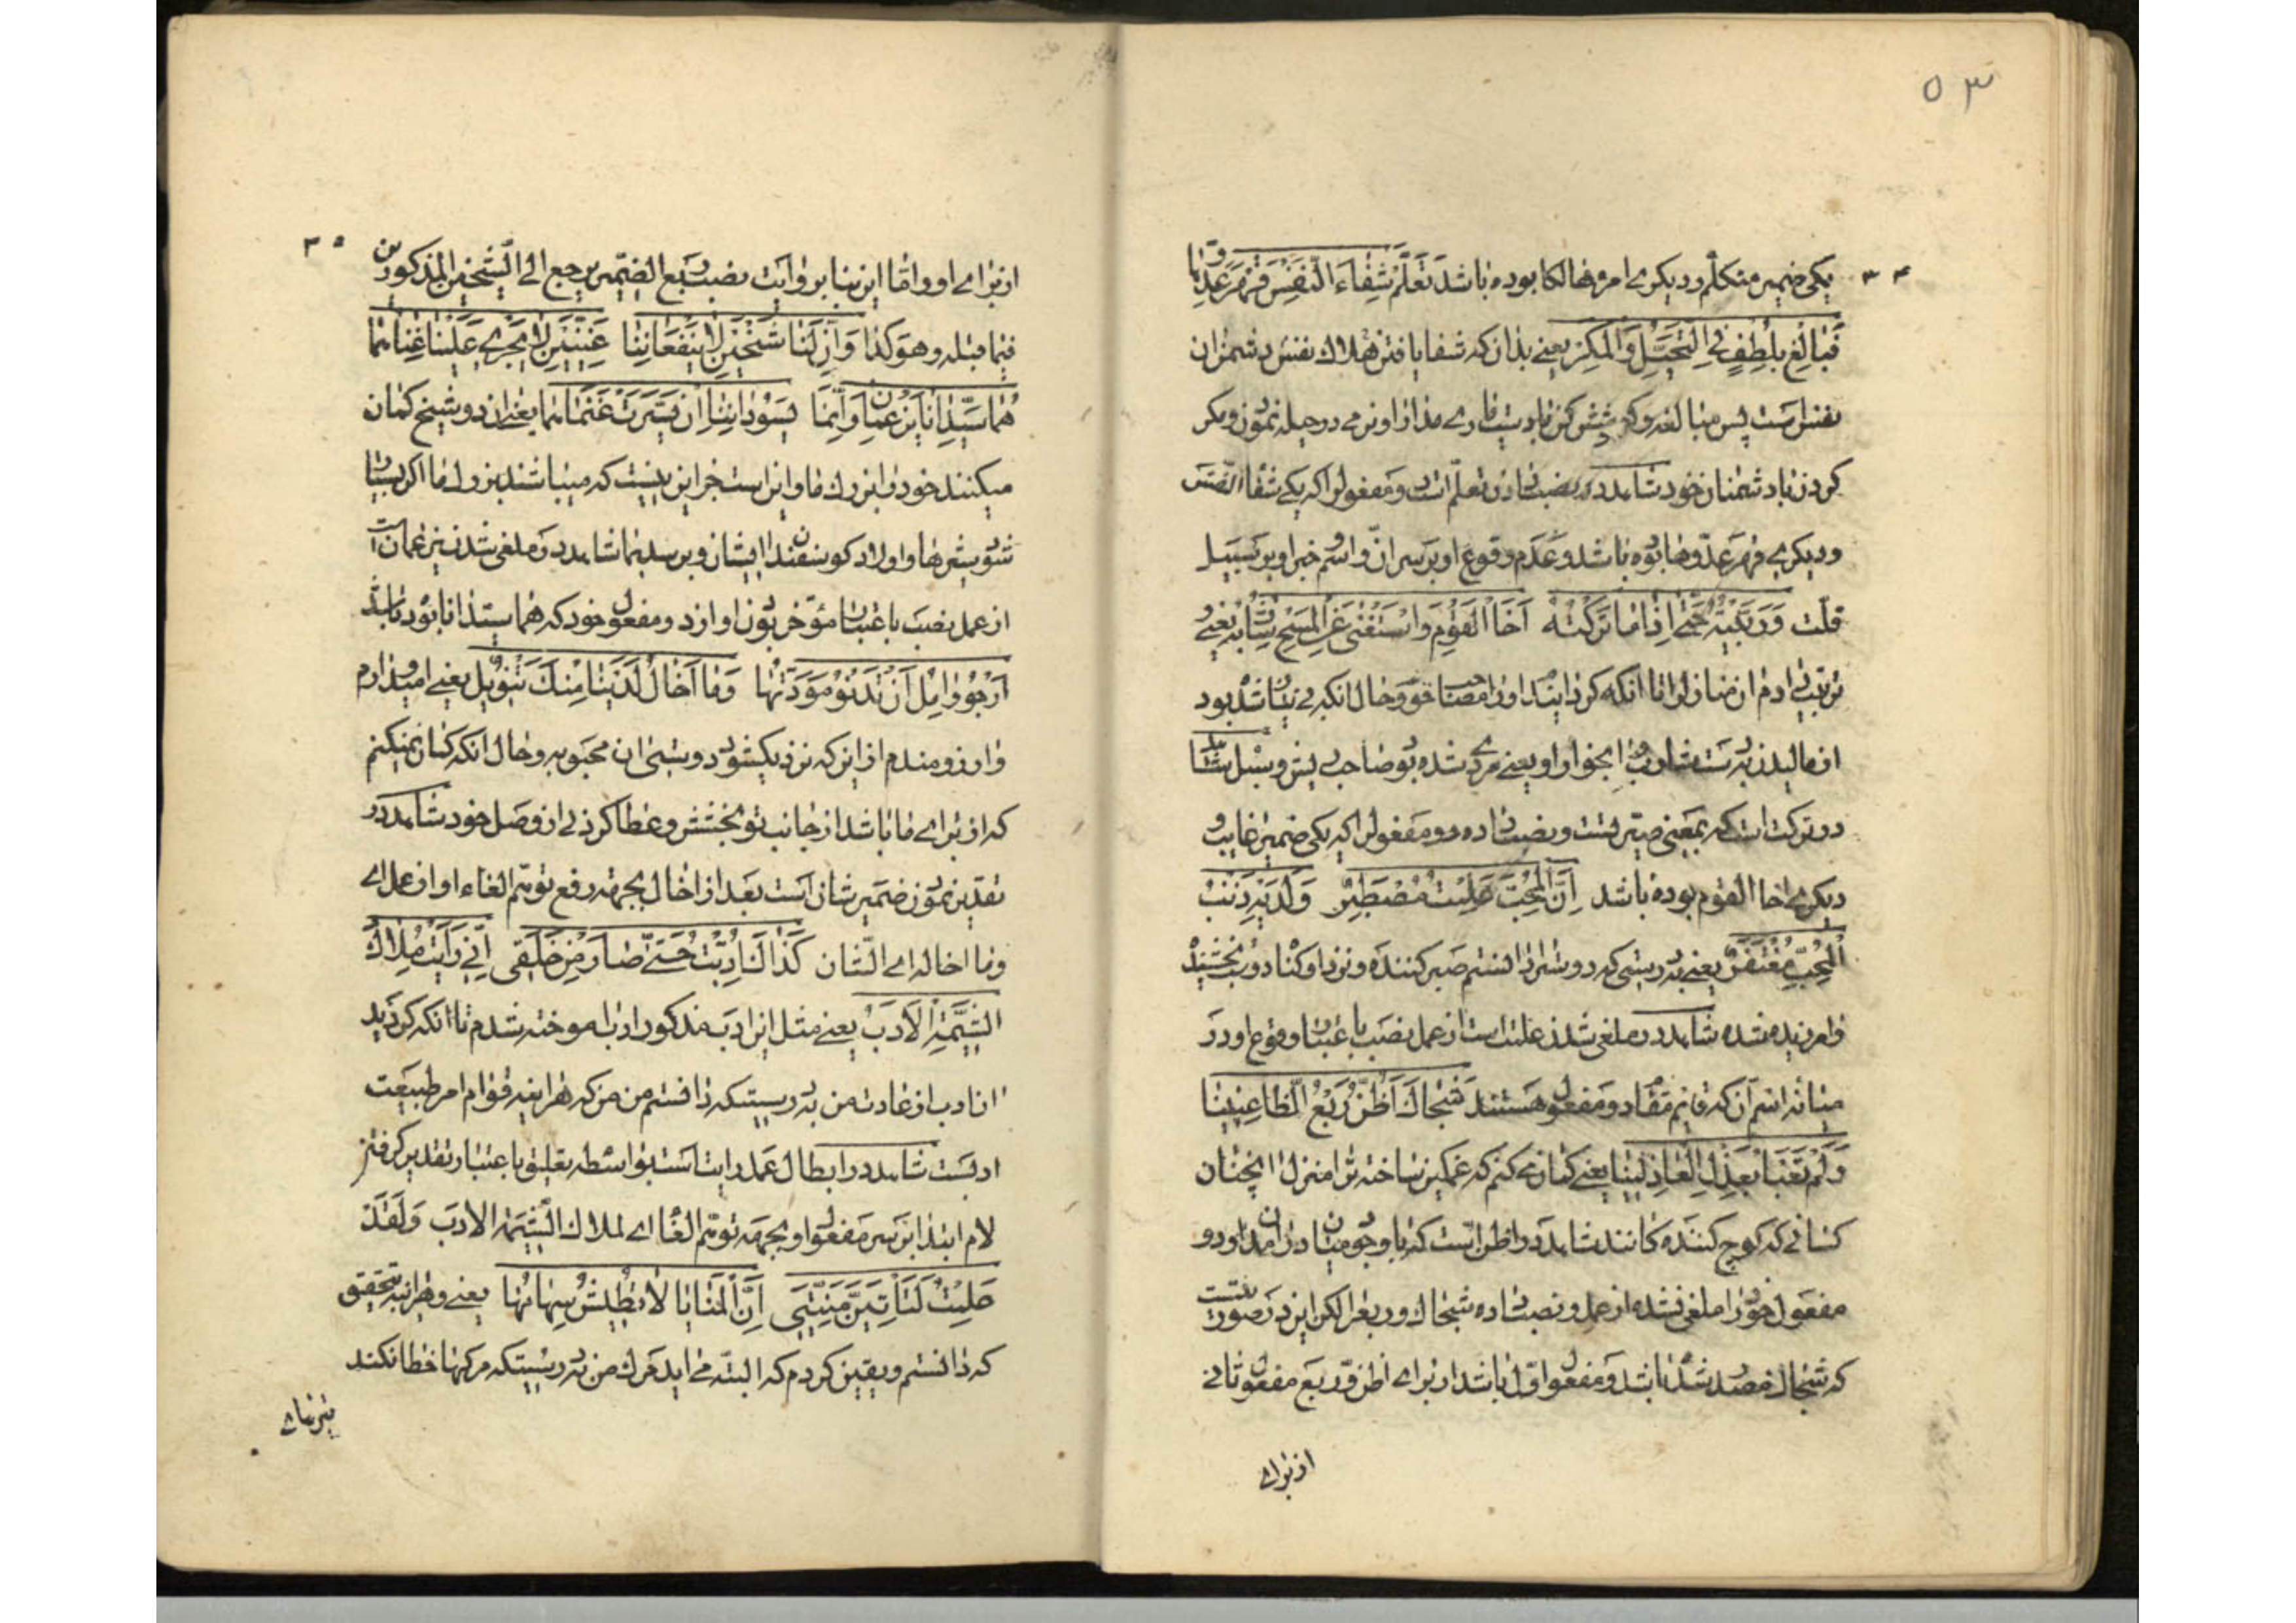 ۵۳
۳۴
یکی ضمیر متکلم و دیکری امرء هالکا بوده باشد تَعَلَّمْ شِفَاءَ النَّفْسِ قَهْرَ عَدُوِّهَا
فَبَالِغْ بِلُطْفٍ فِی التَّحَیُّلِ وَالْمَکْرِ یعنی بدان که شفا یافتن هلاک نفس دشمنان
نفس است پس مبالغه و کوشش کن بادستیاری مدارا و نرمی در حیله نمودن و مکر
کردن با دشمنان خود شاهد در نصب دادن تعلم است دو مفعول را که یکی شفاء النفس
و دیکری قهر عدوها بوده باشد و عدم وقوع او بر سر انّ و اسم و خبر او بر سبیل
قلت وَرَبَّیْتُهُ حَتّٰی اِذَا مَا تَرَکْتُهُ اَخَا الْقَوْمِ وَاسْتَغْنٰی عَنِ الْمَسْحِ شَارِبُهُ یعنی
تربیت دادم ان منازل را تا انکه کردانیدم او را مصاحب خود و حال انکه بی نیاز شده بود
از مالیدن بدست شارب انجوان او یعنی مردی شده بود صاحب ریش و سبیل شاهد
در ترکت است که بمعنی صیّرتست و نصب داده دو مفعول را که یکی ضمیر غایب و
دیکری اخا القوم بوده باشد اِنَّ الْمُحِبَّ عَلِمْتُ مُصْطَبِرٌ وَلَدَیْهِ ذَنْبُ
الْحِبِّ مُغْتَفَرٌ یعنی بدرستی که دوست را دانستم صبر کننده و نزد او کناه دوست بخشیده
و امرزیده شده شاهد در ملغی شدن علمت است از عمل نصب باعتبار وقوع او در
میانه اسم ان که قایم مقام دو مفعول هستند شَجَاكَ أَظُنُّ رَبْعُ الظَّاعِنِینَا
وَلَمْ تَعْبَأْ بِعَذْلِ الْعَاذِلِینَا یعنی کمان می کنم که غمکین ساخته ترا منزل انچنان
کسانی که کوچ کننده کانند شاهد در اظن است که با وجود میان در امدن او دو
مفعول خود را ملغی نشده از عمل و نصب داده شجاك و ربع را لکن این در صورتیست
که شجاك مصدر شده باشد و مفعول اول باشد از برای اظن و ربع مفعول ثانی
از برای
۳۵
از برای او و اما این بنا بر روایت نصب ربع الضمیر یرجع الی الشخص المذکور من
فیما قبله و هو کذا وَاِنَّ لَنَا شَیْخَیْنِ لَا یَنْفَعَانِنَا غَنِیَّیْنِ لَا یُجْرِی عَلَیْنَا غِنَاهُمَا
هُمَا سَیِّدَانَا یَزْعُمَانِ وَاِنَّمَا یَسُودَانِنَا اِنْ یَسَّرَتْ غَنَمَاهُمَا یعنی ان دو شیخ کمان
میکنند خود را بزرك ما و این است جز این نیست که میباشند بزرك ما اکر بسیار
شود شیرها و اولاد کوسفندان ایشان و برسد بما شاهد در ملغی شدن یزعمان است
از عمل نصب باعتبار مؤخر بودن او از دو مفعول خود که هما سیدانا بوده باشد
اَرْجُو وَاٰمُلُ اَنْ تَدْنُو مَوَدَّتُهَا وَمَا اِخَالُ لَدَیْنَا مِنْكَ تَنْوِیلُ یعنی امید دارم
و ارزومندم از این که نزدیک شود دوستی ان محبوبه و حال انکه کمان نمیکنم
که از برای ما باشد از جانب تو بخشش و عطا کردنی از وصل خود شاهد در
تقدیر نمودن ضمیر شان است بعد از اخال بجهة رفع توهم الغاء او از عمل ای
وما اخاله ای الشان کَذَاكَ اُدِّبْتُ حَتّٰی صَارَ مِنْ خُلُقِی اَنِّی رَاَیْتُ مِلَاكُ
الشِّیمَةِ الْاَدَبُ یعنی مثل این ادب مذکور ادب اموخته شدم تا انکه کردید
ان ادب از عادت من بدرستیکه یافتم من که هراینه قوام امر طبیعت
ادبست شاهد در ابطال عمل رایتست بواسطه تعلیق باعتبار تقدیر کرفتن
لام ابتدا بر سر مفعول او بجهة توهم الغاء ای لملاك الشیمة الادب وَلَقَدْ
عَلِمْتُ لَتَأْتِیَنَّ مَنِیَّتِی اِنَّ الْمَنَایَا لَا تَطِیشُ سِهَامُهَا یعنی و هراینه بتحقیق
که دانستم و یقین کردم که البته می اید مرك من بدرستیکه مرکها خطا نکند
تیرهای